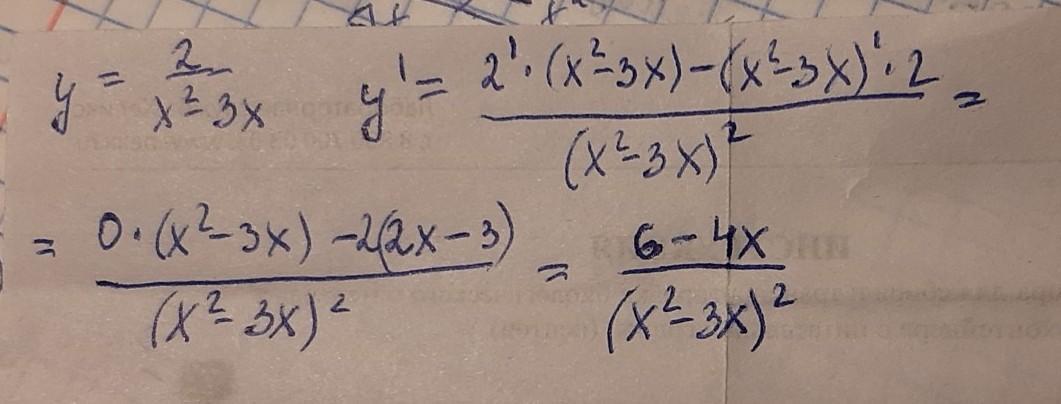 y = 2/(x² - 3x) y' = (2' · (x² - 3x) - (x² - 3x)' · 2)/(x² - 3x)² =
= (0 · (x² - 3x) - 2(2x - 3))/(x² - 3x)² = (6 - 4x)/(x² - 3x)²